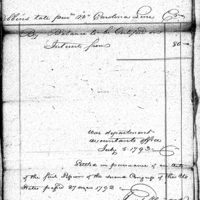 late from No. Carolina Line
By Balance to be Certified on
Interest from 80
War department
accountants office
July 5. 1792
Settled in pursuance of an Act
of the first Session of the second Congress of the
States passed 27 March 1792